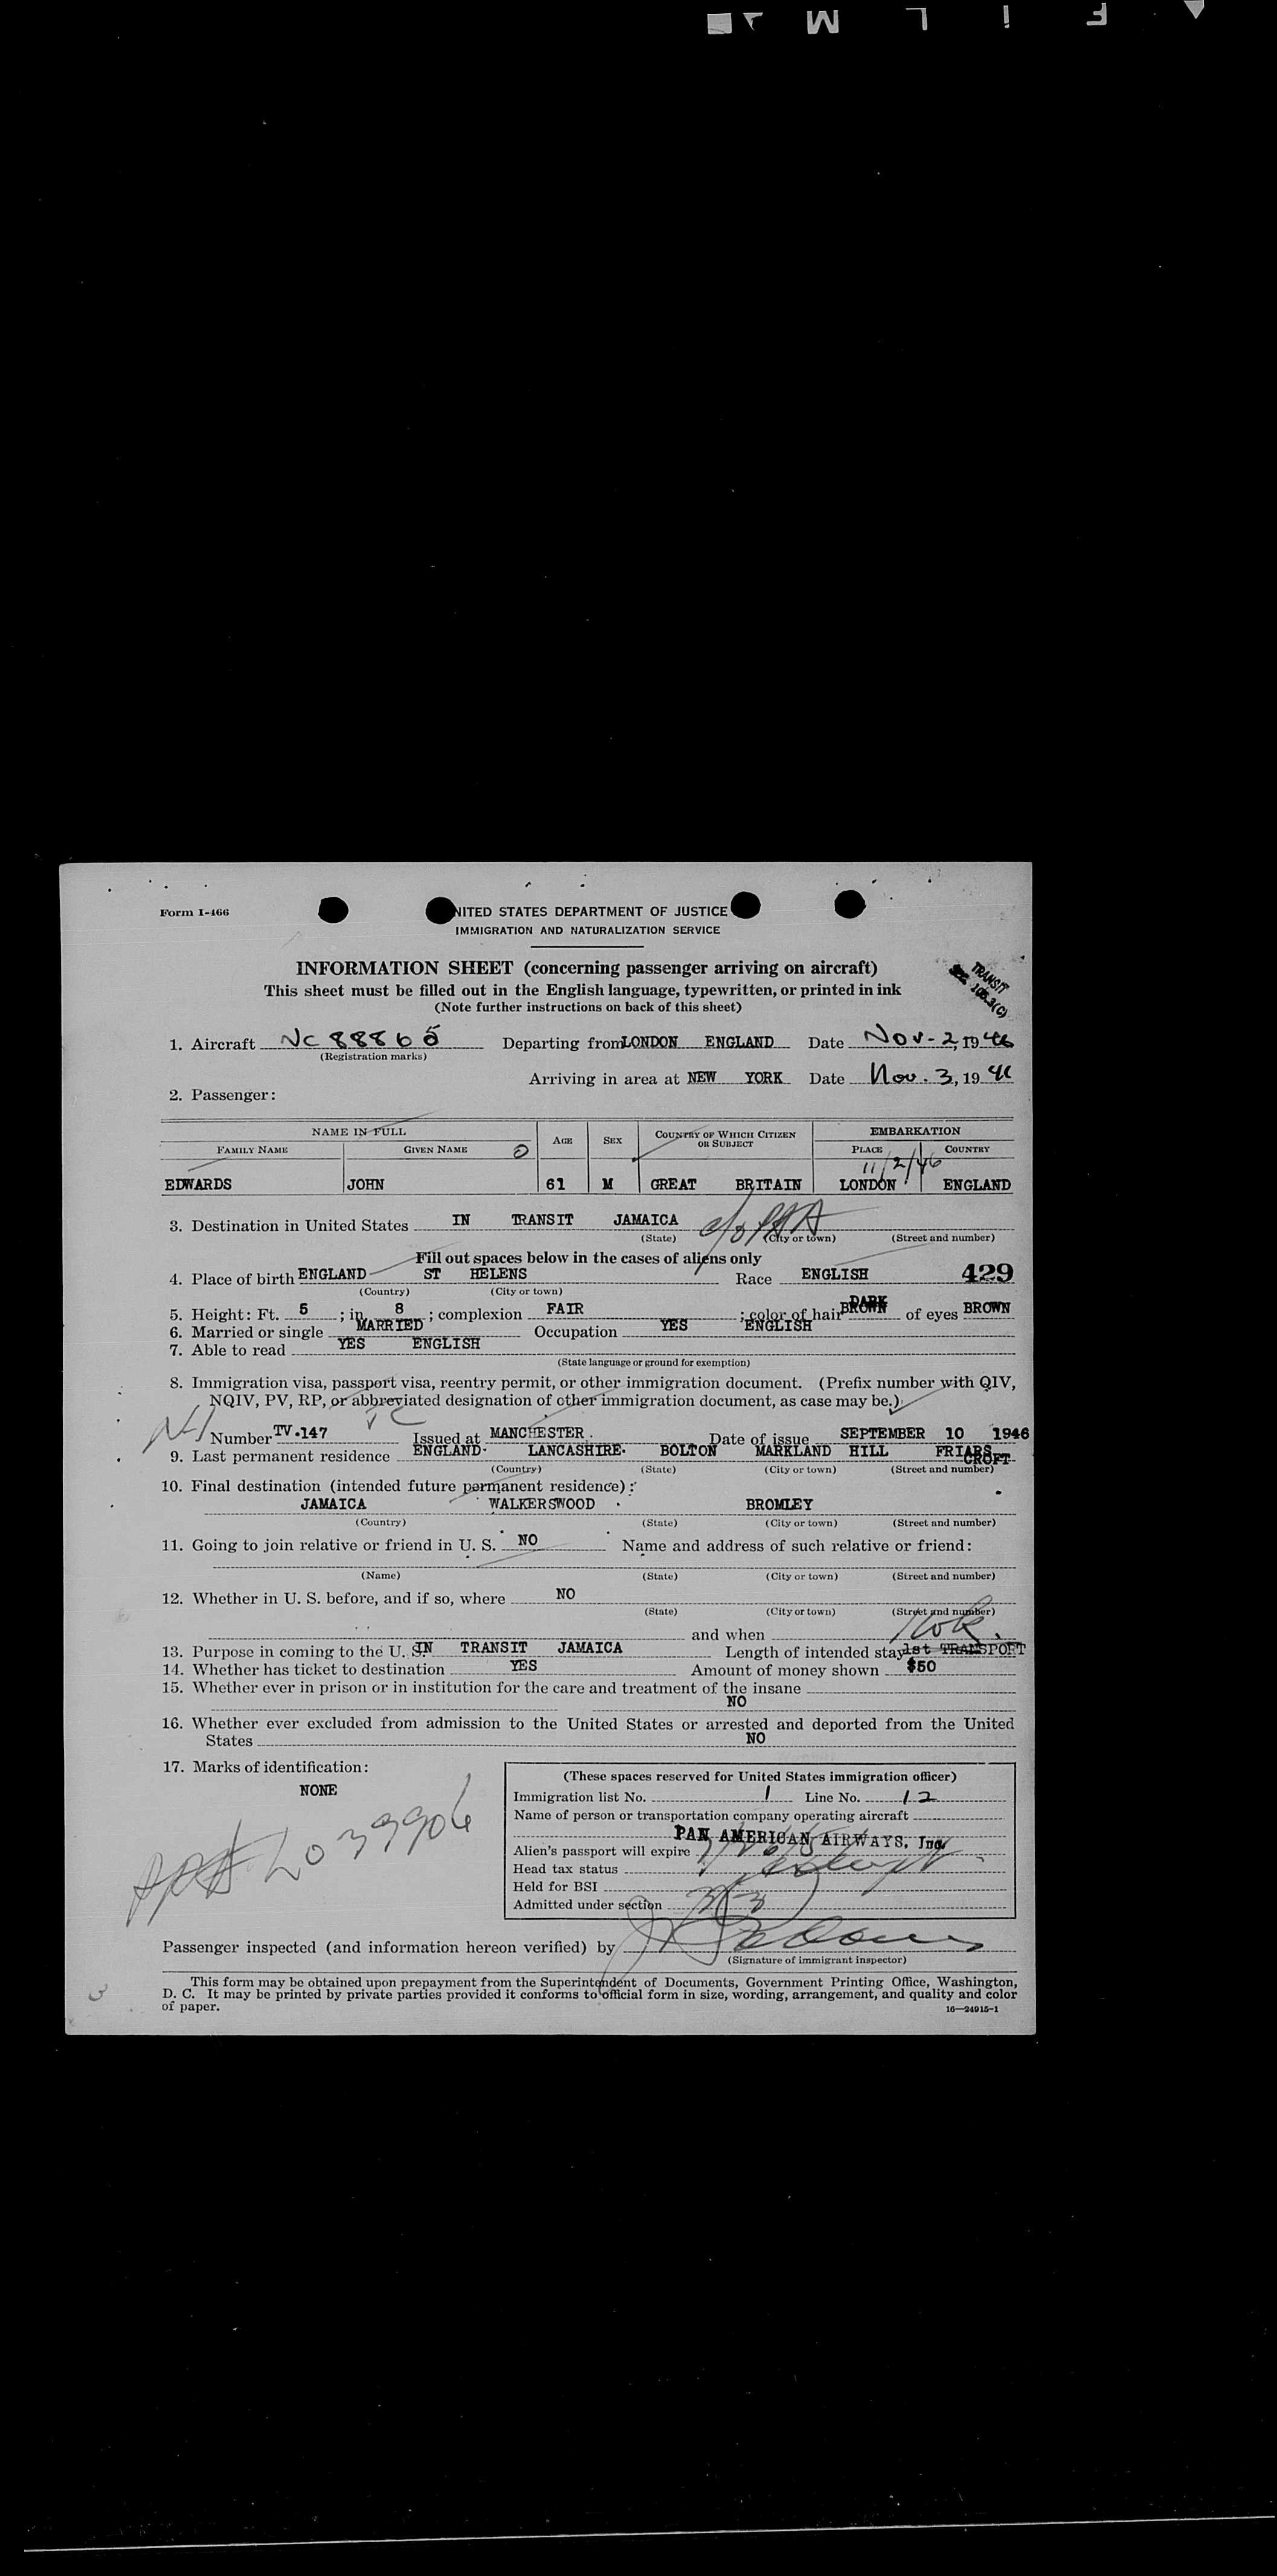 F I L M
Form I-466
NITED STATES DEPARTMENT OF JUSTICE
IMMIGRATION AND NATURALIZATION SERVICE
INFORMATION SHEET (concerning passenger arriving on aircraft)
This sheet must be filled out in the English language, typewritten, or printed in ink
(Note further instructions on back of this sheet)
TRANSIT
1. Aircraft NC 88865 Departing from LONDON ENGLAND Date Nov-2, 1946
(Registration marks)
Arriving in area at NEW YORK Date Nov. 3, 19 46
2. Passenger:
NAME IN FULL AGE SEX COUNTRY OF WHICH CITIZEN OR SUBJECT EMBARKATION
FAMILY NAME GIVEN NAME PLACE COUNTRY
11/2/46
EDWARDS JOHN 61 M GREAT BRITAIN LONDON ENGLAND
3. Destination in United States IN TRANSIT JAMAICA
(State) (City or town) (Street and number)
Fill out spaces below in the cases of aliens only
4. Place of birth ENGLAND ST HELENS Race ENGLISH 429
(Country) (City or town)
5. Height: Ft. 5 ; in. 8 ; complexion FAIR ; color of hair DARK BROWN of eyes BROWN
6. Married or single MARRIED Occupation YES ENGLISH
7. Able to read YES ENGLISH
(State language or ground for exemption)
8. Immigration visa, passport visa, reentry permit, or other immigration document. (Prefix number with QIV,
NQIV, PV, RP, or abbreviated designation of other immigration document, as case may be.)
Number TV.147 Issued at MANCHESTER. Date of issue SEPTEMBER 10 1946
9. Last permanent residence ENGLAND LANCASHIRE BOLTON MARKLAND HILL FRIARS CROFT
(Country) (State) (City or town) (Street and number)
10. Final destination (intended future permanent residence):
JAMAICA WALKERSWOOD BROMLEY
(Country) (State) (City or town) (Street and number)
11. Going to join relative or friend in U. S. NO Name and address of such relative or friend:
(Name) (State) (City or town) (Street and number)
12. Whether in U. S. before, and if so, where NO
(State) (City or town) (Street and number)
and when
13. Purpose in coming to the U. S. IN TRANSIT JAMAICA Length of intended stay 1st TRANSPORT
14. Whether has ticket to destination YES Amount of money shown $50
15. Whether ever in prison or in institution for the care and treatment of the insane
NO
16. Whether ever excluded from admission to the United States or arrested and deported from the United
States NO
17. Marks of identification:
NONE
(These spaces reserved for United States immigration officer)
Immigration list No. 1 Line No. 12
Name of person or transportation company operating aircraft
PAN AMERICAN AIRWAYS, Inc.
Alien's passport will expire
Head tax status
Held for BSI
Admitted under section
Passenger inspected (and information hereon verified) by
(Signature of immigrant inspector)
This form may be obtained upon prepayment from the Superintendent of Documents, Government Printing Office, Washington,
D. C. It may be printed by private parties provided it conforms to official form in size, wording, arrangement, and quality and color
of paper.
16—24915-1
3